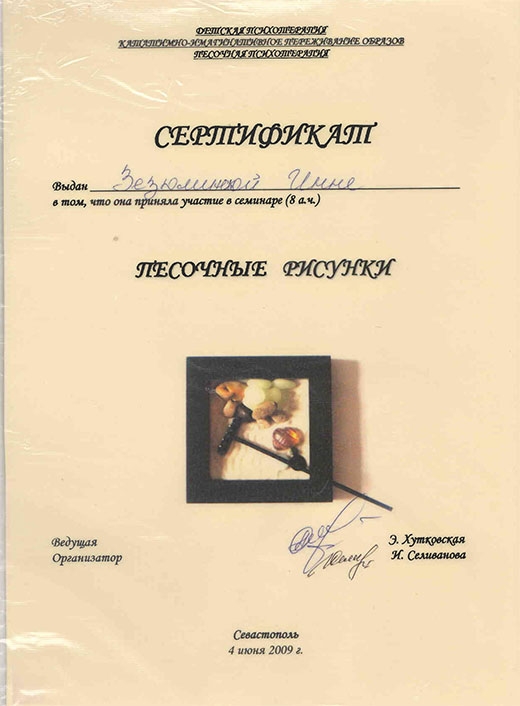 ДЕТСКАЯ ПСИХОТЕРАПИЯ
КАТАТИМНО-ИМАГИНАТИВНОЕ ПЕРЕЖИВАНИЕ ОБРАЗОВ
ПЕСОЧНАЯ ПСИХОТЕРАПИЯ
СЕРТИФИКАТ
Выдан Зезюлинской Инне
в том, что она приняла участие в семинаре (8 а.ч.)
ПЕСОЧНЫЕ РИСУНКИ
Ведущая Э. Хутковская
Организатор И. Селиванова
Севастополь
4 июня 2009 г.